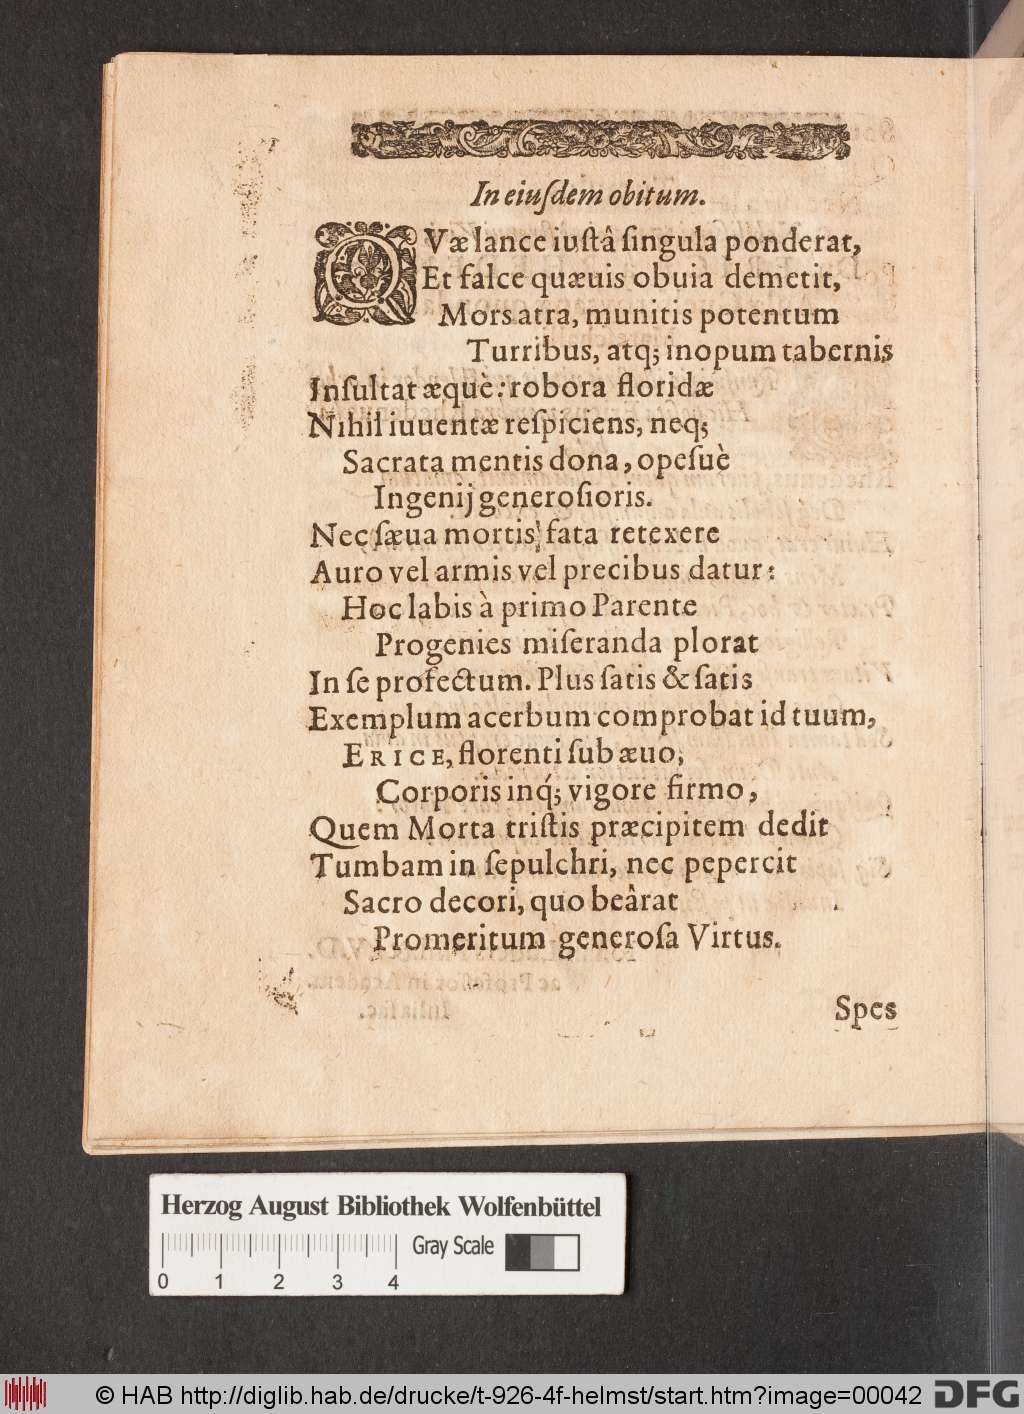 In eiuſdem obitum.
QVæ lance iuſtâ ſingula ponderat,
Et falce quæuis obuia demetit,
Mors atra, munitis potentum
Turribus, atq; inopum tabernis
Inſultat æquè: robora floridæ
Nihil iuuentæ reſpiciens, neq;
Sacrata mentis dona, opeſuè
Ingenij generoſioris.
Nec ſæua mortis fata retexere
Auro vel armis vel precibus datur:
Hoc labis à primo Parente
Progenies miſeranda plorat
In ſe profectum. Plus ſatis & ſatis
Exemplum acerbum comprobat id tuum,
ERICE, florenti ſub æuo,
Corporis inq́; vigore firmo,
Quem Morta triſtis præcipitem dedit
Tumbam in ſepulchri, nec pepercit
Sacro decori, quo beârat
Promeritum generoſa Virtus.
Spes
Herzog August Bibliothek Wolfenbüttel
Gray Scale
0 1 2 3 4
© HAB http://diglib.hab.de/drucke/t-926-4f-helmst/start.htm?image=00042
DFG